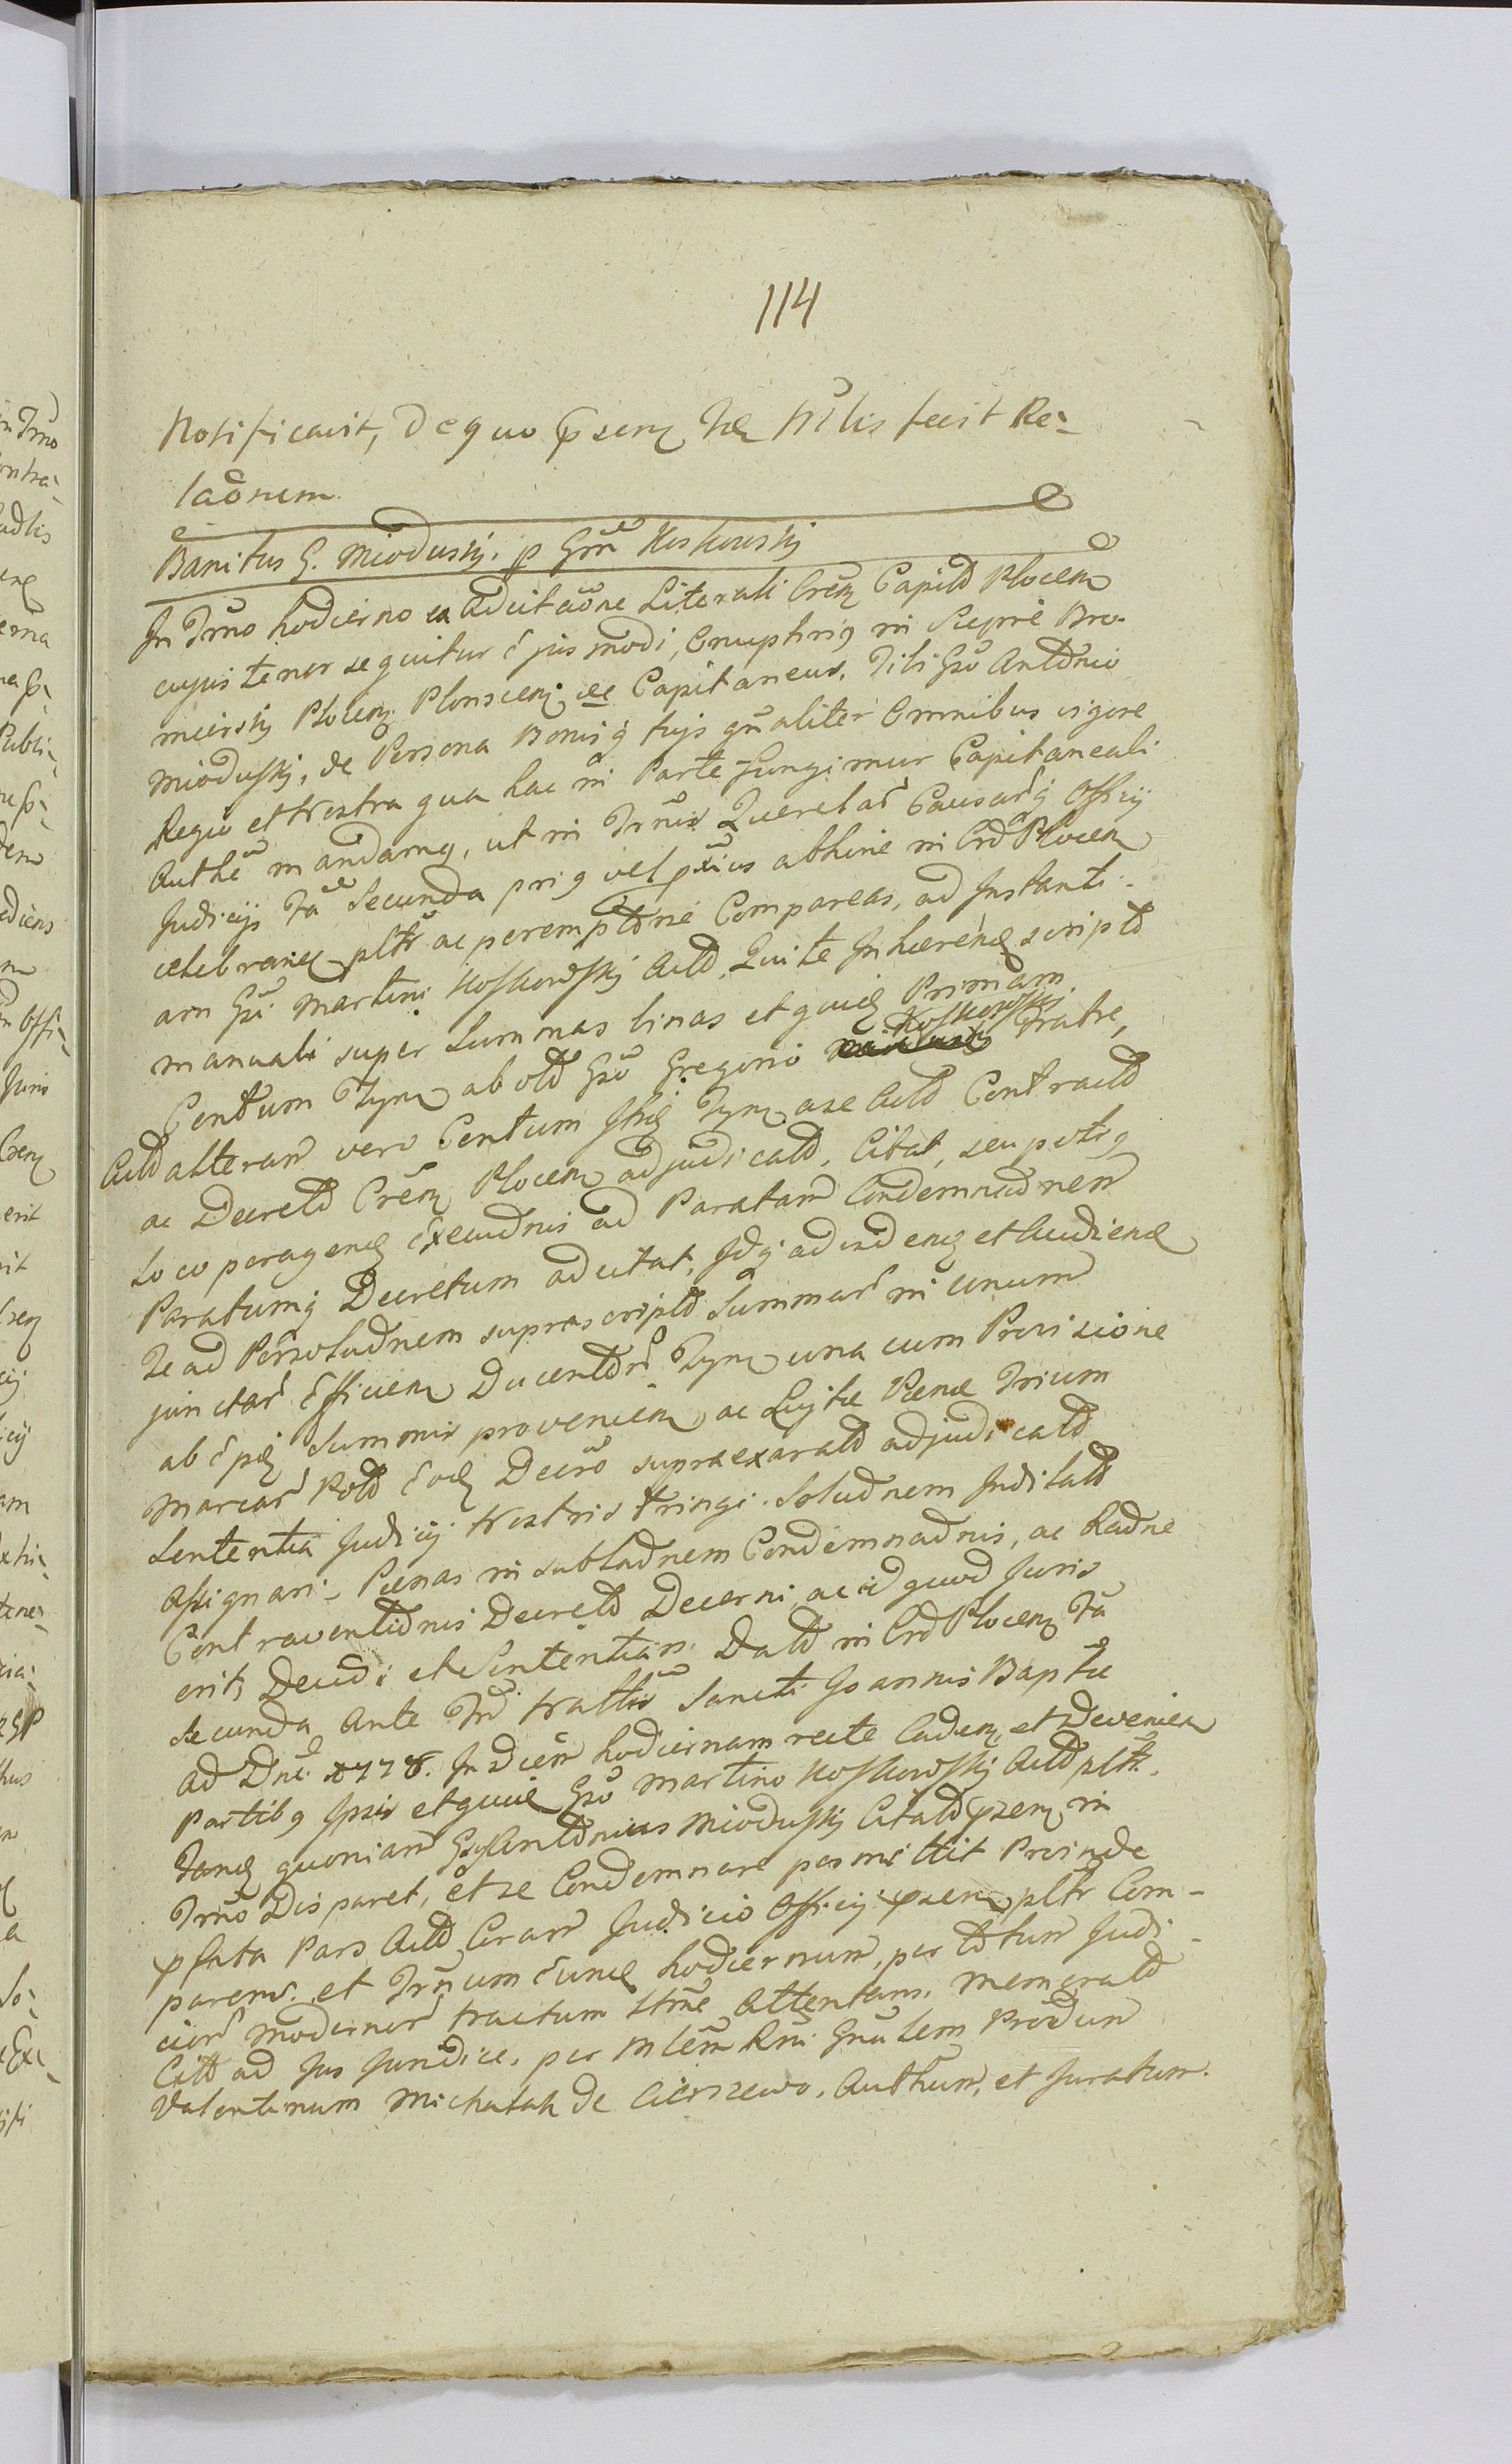 114
Notificavit, de quo psens Mlis fecit Re-
laõnem.
Banitus G. Mioduski. p Gsm Koskowski
In Trno hodierno ex Adcitaõne Literali Cren Capitd Plocen
cujus tenor sequitur Ejusmodi, Onuphrig in Siepre Bro-
mierski Plocen Plonscen ee Capitaneus. Tibi Gso Antonio
Mioduski, de Persona Bonisq tuis gnaliter Omnibus vigore
Regio et Nostra qua hac in Parte fungimur Capitaneali
Authe mandamg, ut in Trnis Querelar Causarq Officij
Judicijs Fa Secunda prig vel pxius abhinc in Crd Plocen
celebran pltr ac peremptorie Compareas, ad Instanti-
am Gsi Martini Koskowski Actd, Qui te Inhaeren scriptd
manuali super Summas binas et quid Primam
Centum Tynf ab old Gso Gregorio Koskowski Fratre,
Actd alteram vero Centum Tynf a se Actd Contractd
ac Decretd Cren Plocen adjudicatd, Citat, seu potig
Loco peragend Execuõnis ad Paratam Condemnaõnem
Paratumq Decretum adcitat, Idq ad videnq et Audiend
Te ad Persoluõnem suprascriptd Summar in unum
junctar Efficien Ducentor Tynf una cum Provisione
ab Summis provenien ac Luitu Poenae Trium
Marcar Pold Eod Decro supraexaratd adjudicatd
Sententia Judicij Nostris tringi. Soluõnem Indilatd
Assignari. Poenas in sublaõnem Condemnaõnis, ac Raõne
Contraventionis Decretd Decerni, ac id quod Juris
erit, Decidi et Sententiari. Datd in Crd Plocen Fa
Secunda Ante Fm Natlis Sancti Joannis Baptae
Ad Dni 1778. In Diem hodiernam recte Caden et Devenien
Partibg Ipsis et quid Gso Martino Koskowski Actd pltr.
Tand quoniam Gsg Antonius Mioduski Citatd psens in
Trno Disparet, et se Condemnare permittit Proinde
pfata Pars Actd Coram Judicio Officij psen pltr Com-
parens. et Trnum Eund hodiernum, per totum Judi-
cior modernor tractum Attentans. Memoratd
Citt ad Jus Juridice, per Mlem Rni Gnalem Providum
Valentinum Michatak de Cierszewo. Authum, et Juratum.